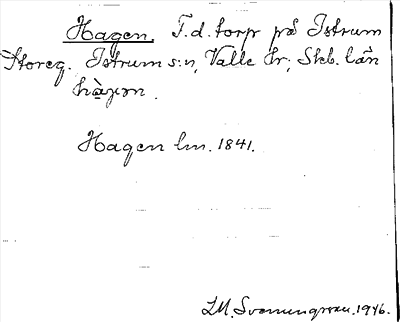 Hagen. F.d. torp på Istrum
Storeg. Istrum s:n, Valle hr; Skb. län
Hagen lm. 1841.
L.M. Svenungsson. 1946.